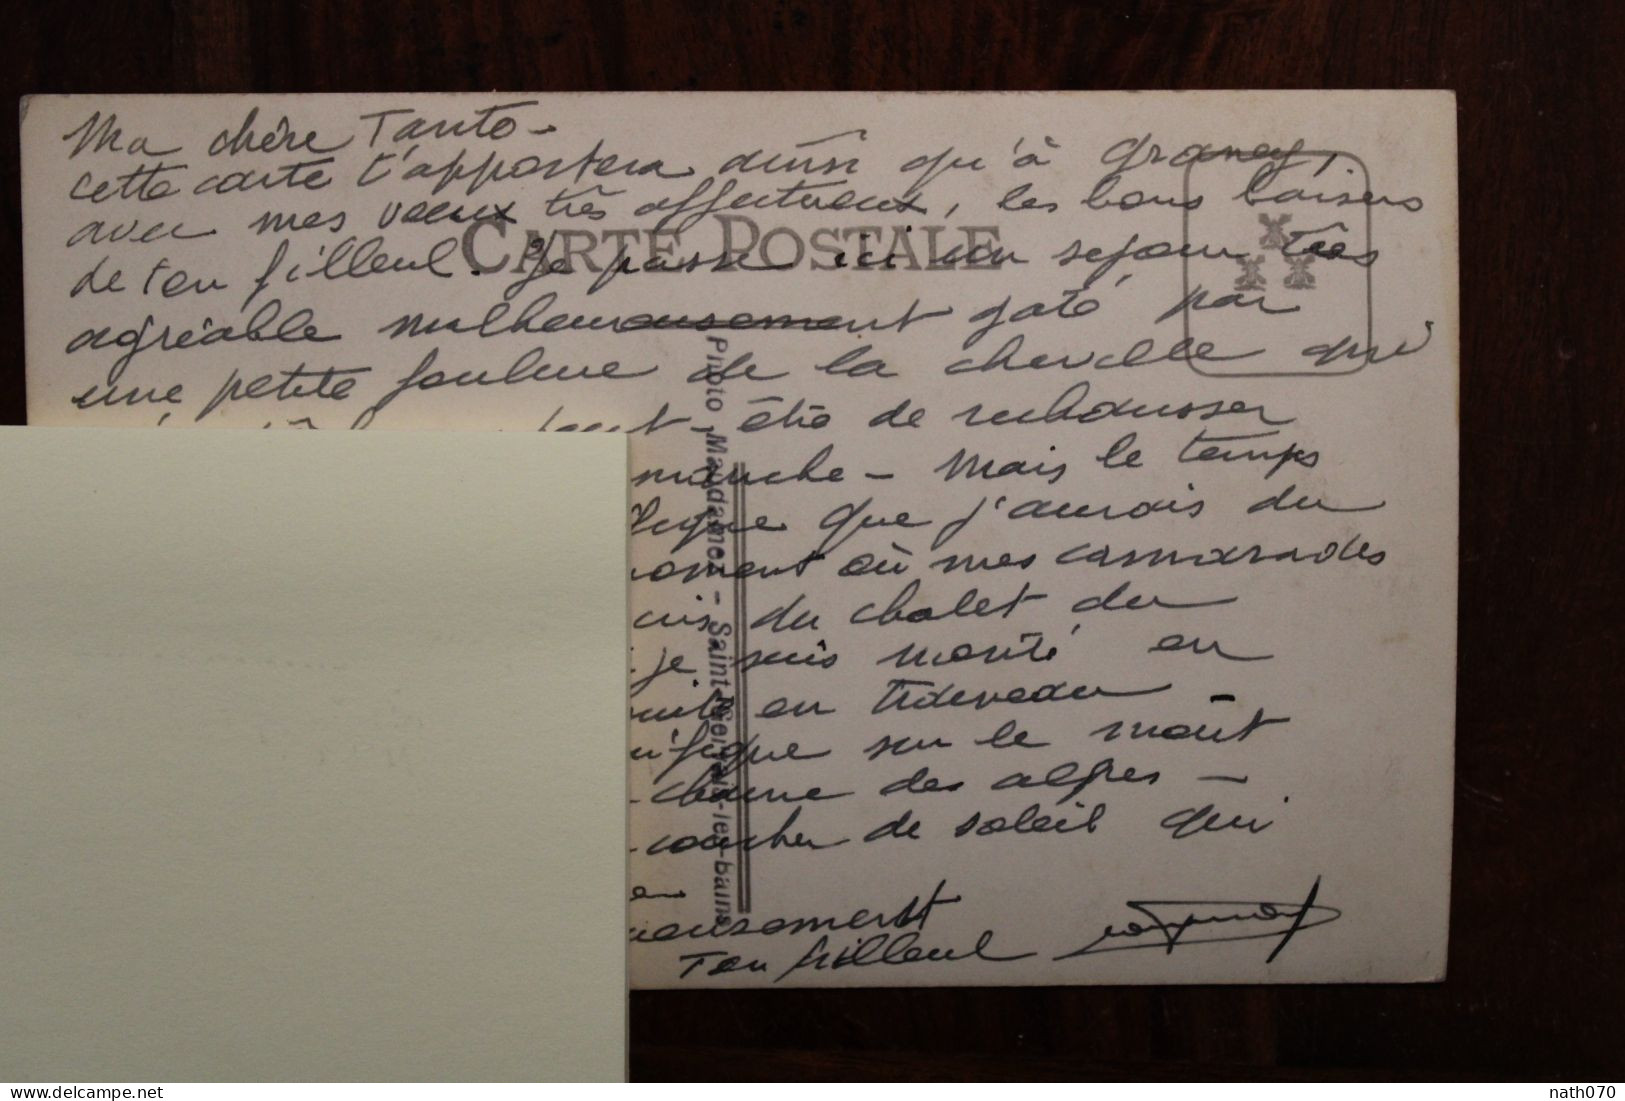 Ma chère Tanto -
cette carte t'apportera ainsi qu'àГраney,
avec mes voeux très affectueux, les bons baisers
de ton filleul. Je passe ici un sejour très
agréable malheureusement gaté par
une petite foulure de la cheville qui
été de rechausser
manche - Mais le temps
que j'aurais du
moment où mes camarades
du chalet du
je suis monté en
en traineau
sur le mont
chaine des alpes -
coucher de soleil qui
en
Ton filleul
CARTE POSTALE
Photo Maudamez - Saint-Gervais-les-bains
delcampe.net
nath070